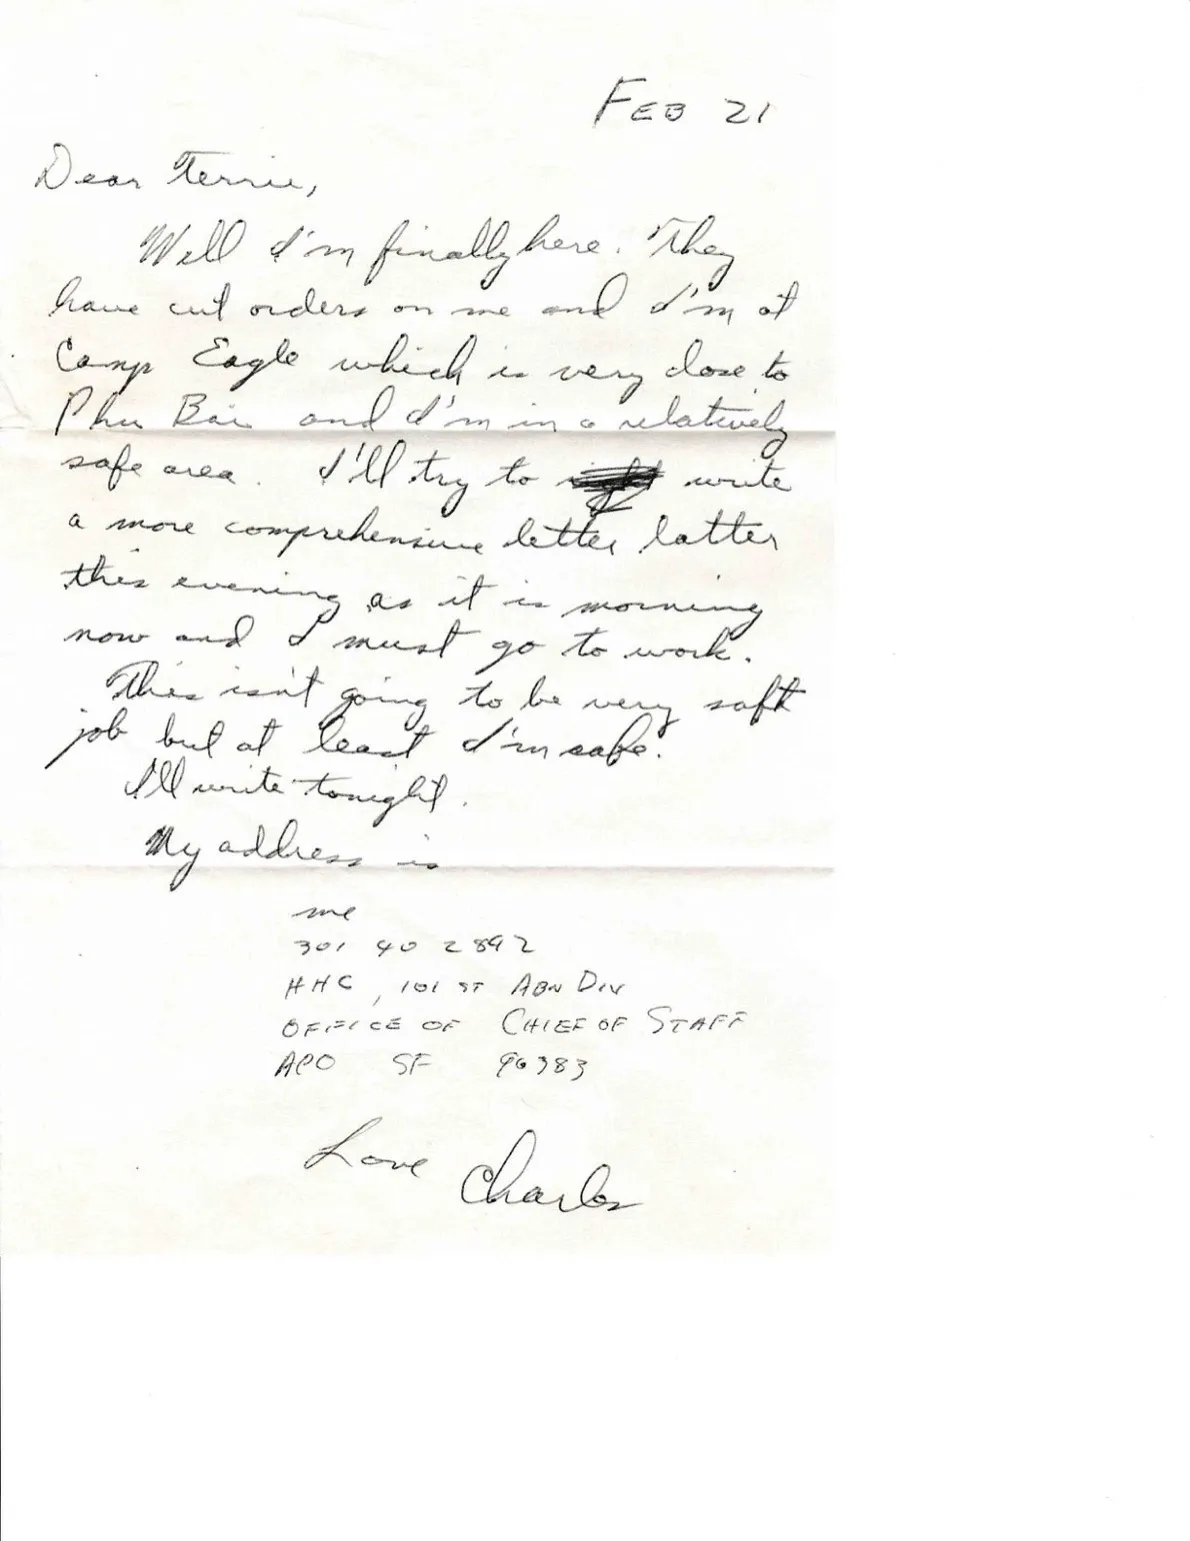 FEB 21
Dear Terrie,
Well I'm finally here. They
have cut orders on me and I'm at
Camp Eagle which is very close to
Phu Bai and I'm in a relatively
safe area. I'll try to write
a more comprehensive letter latter
this evening as it is morning
now and I must go to work.
This isn't going to be very soft
job but at least I'm safe.
I'll write tonight.
My address is
me
301 40 2892
HHC, 101 ST ABN DIV
OFFICE OF CHIEF OF STAFF
APO SF 96383
Love Charles